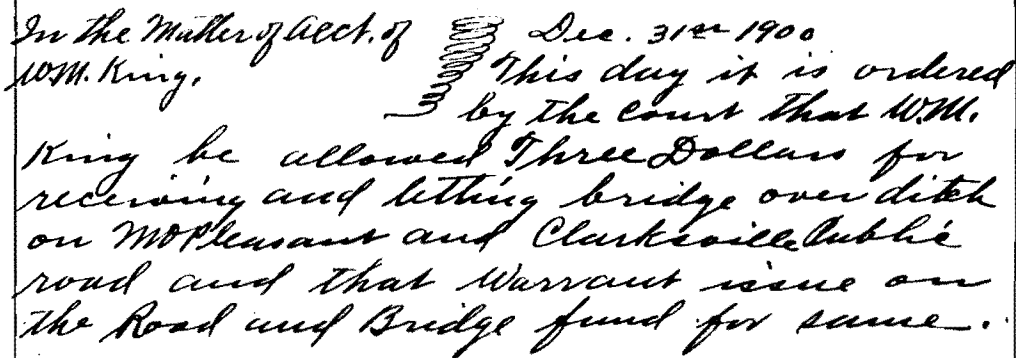 In the Matter of Acct. of
W.M. King.
Dec. 31st 1900
This day it is ordered
by the Court that W.M.
King be allowed Three Dollars for
receiving and letting bridge over ditch
on Mt Pleasant and Clarksville Public
road and that Warrant issue on
the Road and Bridge fund for same.